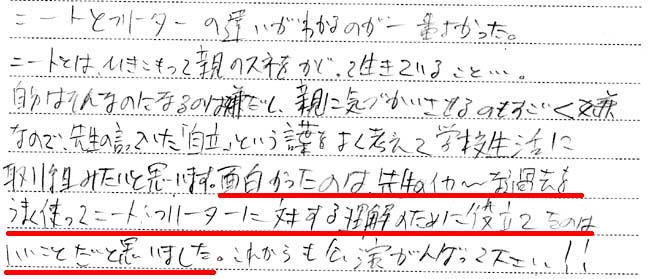 ニートとフリーターの違いがわかるのが一番よかった。
ニートとは、ひきこもって親のスネをかじって生きていること…。
自分はそんなのになるのは嫌だし、親に気づかいさせるのもすごく嫌
なので、先生の言っていた「自立」という言葉をよく考えて学校生活に
取り組みたいと思います。面白かったのは、先生のイカ〜な過去を
うまく使ってニート、フリーターに対する理解のために役立てるのは
いいことだと思いました。これからも公演がんばって下さい!!